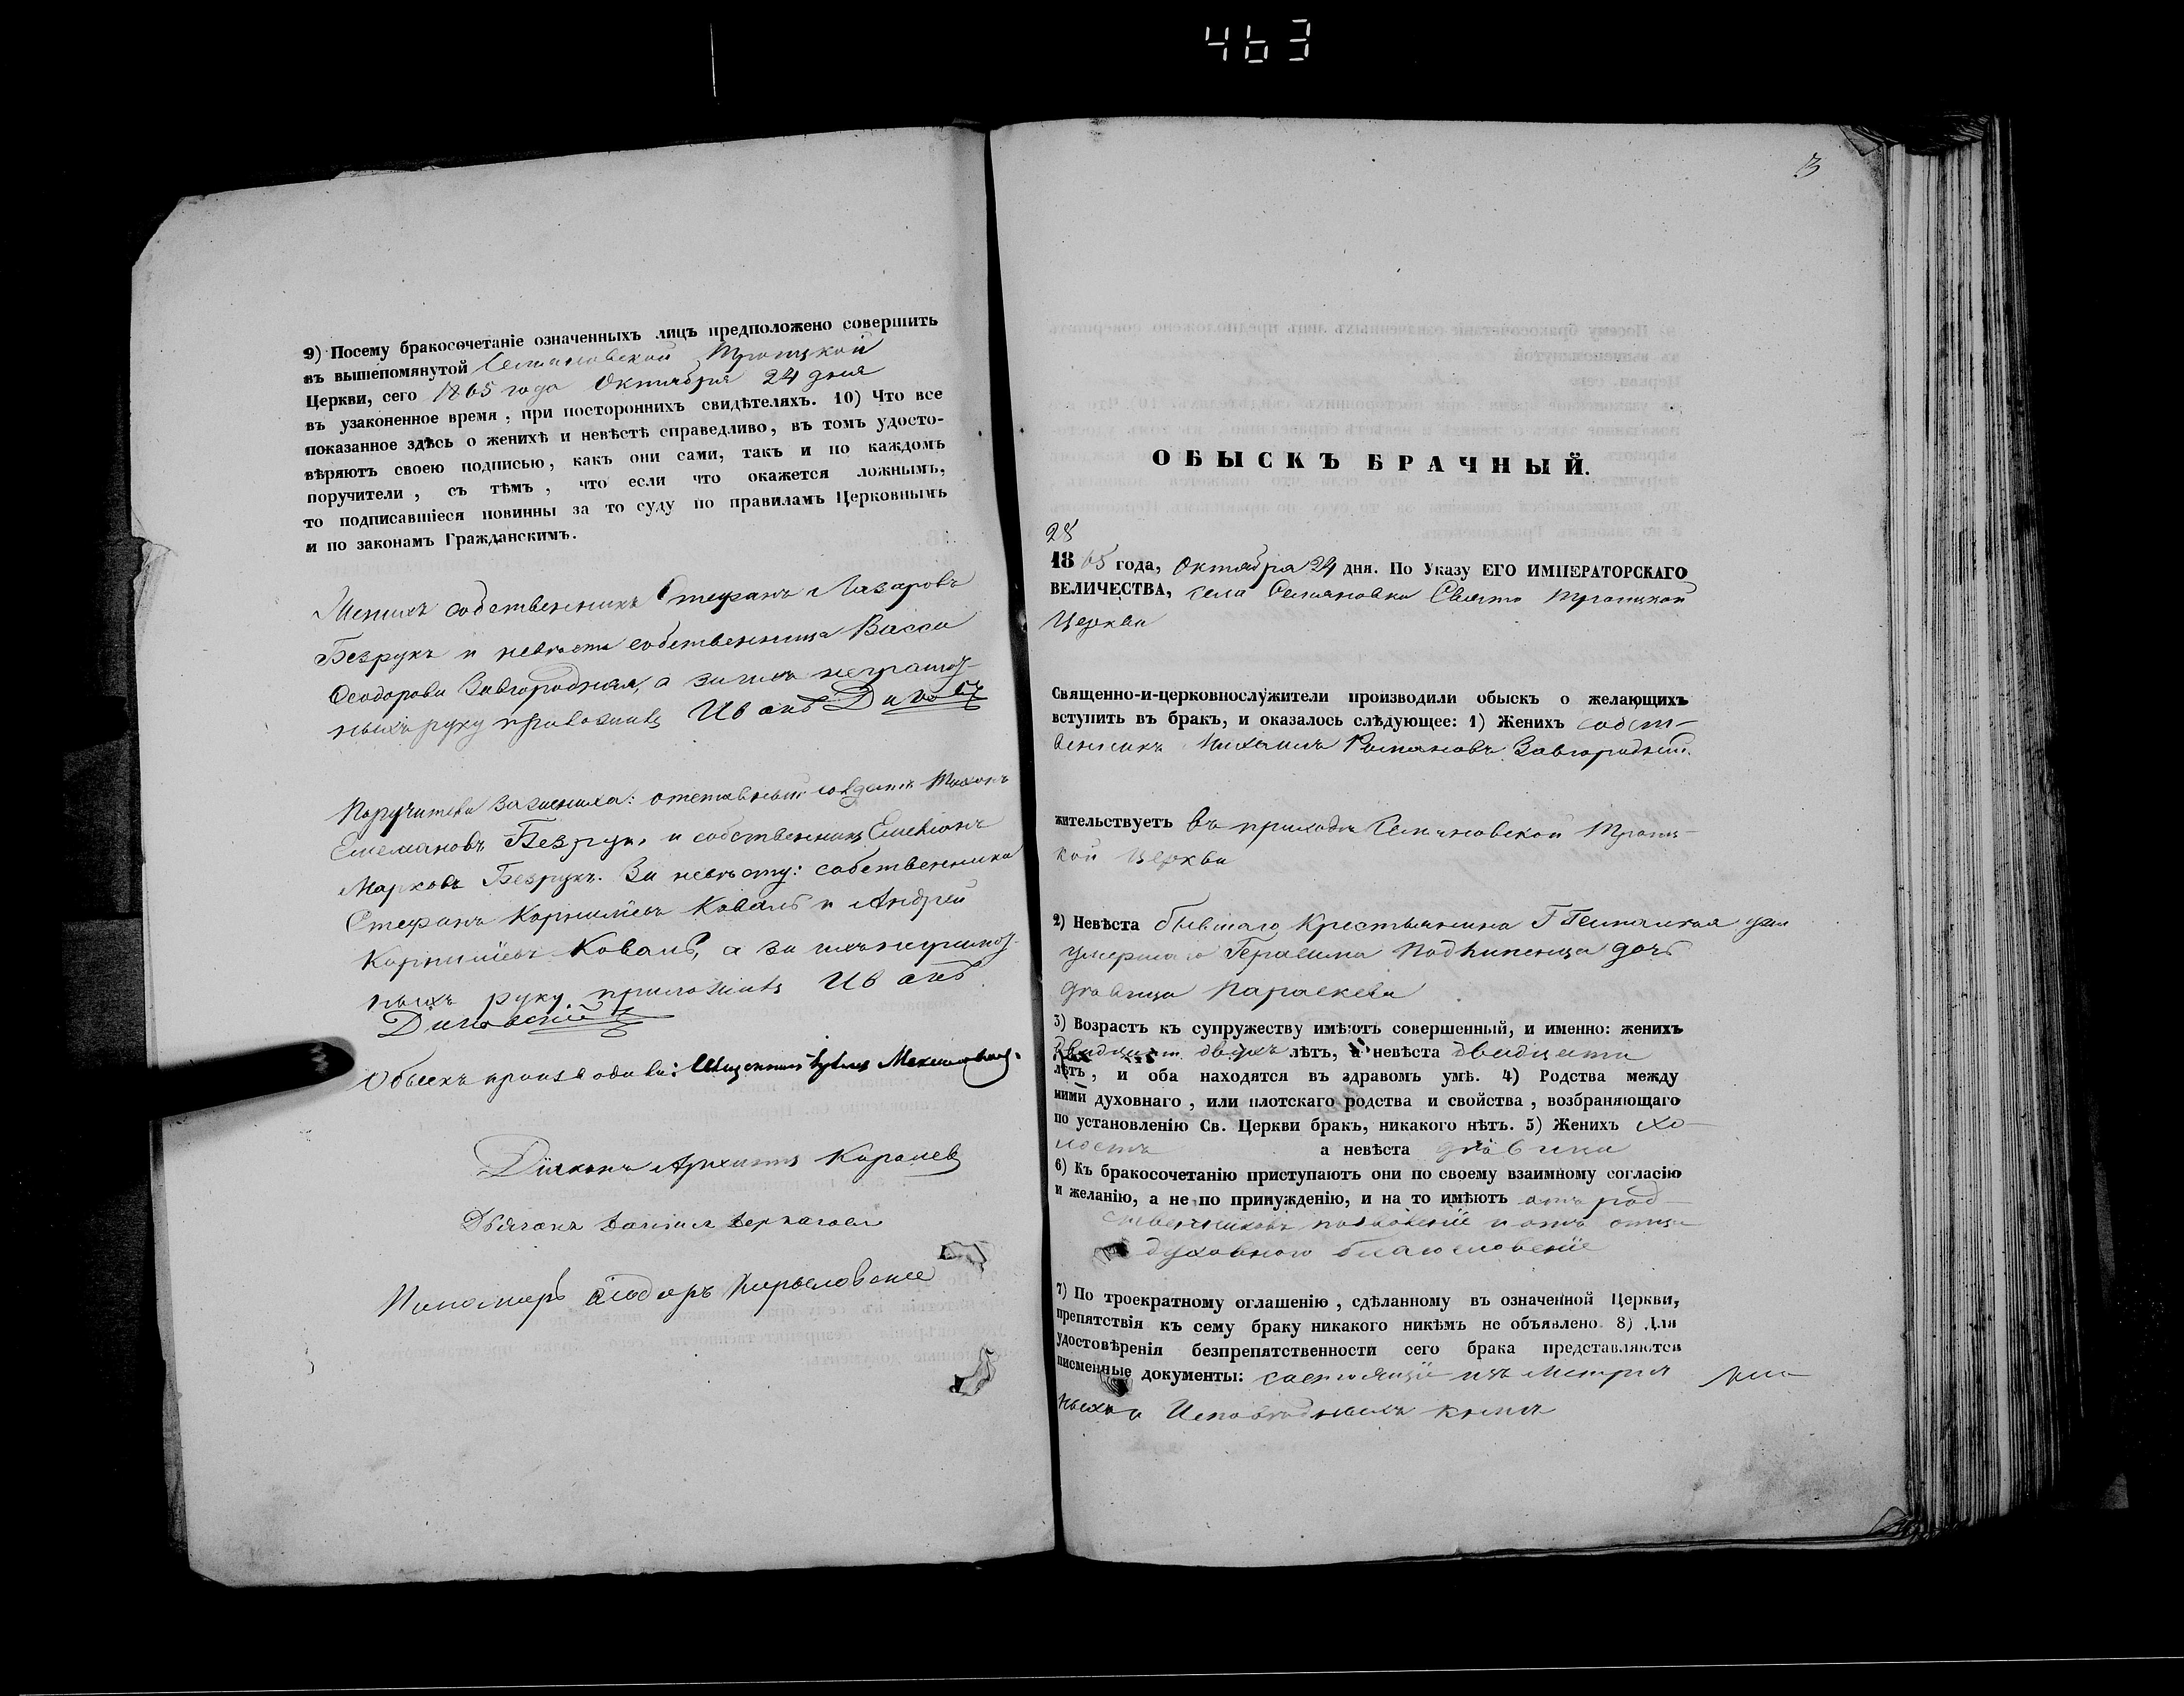 463
9) Посему бракосочетаніе означенныхъ лицъ предположено совершить
въ вышепомянутой Семяновской Троицкой
Церкви, сего 1865 года Октября 24 дня
въ узаконенное время, при постороннихъ свидѣтеляхъ. 10) Что все
показанное здѣсь о женихѣ и невѣстѣ справедливо, въ томъ удосто-
вѣряютъ своею подписью, какъ они сами, такъ и по каждомъ
поручители, съ тѣмъ, что если что окажется ложнымъ,
то подписавшіеся повинны за то суду по правиламъ Церковнымъ
и по законамъ Гражданскимъ.
Женихъ собственникъ Стефанъ Лазаровъ
Безрукъ и невѣста собственница Васса
Феодорова Завгородняя, а за нихъ неграмот-
ныхъ руку приложилъ Иванъ
Поручители за жениха: отставный солдатъ Тихонъ
Безрукъ и собственникъ
Марковъ Безрукъ. За невѣсту: собственники
Стефанъ Корниліевъ Коваль и Андрей
Корниліевъ Коваль, а за ихъ неграмот-
ныхъ руку приложилъ Иванъ
Обыскъ производили:
Діаконъ Королев
Дьячокъ
Пономарь
3
ОБЫСКЪ БРАЧНЫЙ.
28
1865 года, Октября 24 дня. По Указу ЕГО ИМПЕРАТОРСКАГО
ВЕЛИЧЕСТВА, села Семяновки Свято Троицкой
Церкви
Священно-и-церковнослужители производили обыскъ о желающихъ
вступить въ бракъ, и оказалось слѣдующее: 1) Женихъ собст-
венникъ Михаилъ Романовъ Завгородній.
жительствуетъ въ приходѣ Семяновской Троиц-
кой Церкви
2) Невѣста бывшаго Крестьянина
умершаго Герасима дочь
дѣвица Параскева
3) Возрастъ къ супружеству имѣютъ совершенный, и именно: женихъ
двадцати двухъ лѣтъ, а невѣста двадцати
лѣтъ, и оба находятся въ здравомъ умѣ. 4) Родства между
ними духовнаго, или плотскаго родства и свойства, возбраняющаго
по установленію Св. Церкви бракъ, никакого нѣтъ. 5) Женихъ хо-
лостъ а невѣста дѣвица
6) Къ бракосочетанію приступаютъ они по своему взаимному согласію
и желанію, а не по принужденію, и на то имѣютъ отъ род-
ственниковъ позволеніе и отъ отца
духовного благословеніе
7) По троекратному оглашенію, сдѣланному въ означенной Церкви,
препятствія къ сему браку никакого никѣмъ не объявлено. 8) Для
удостовѣренія безпрепятственности сего брака представляются
писменные документы: состоящіе изъ Метри
ныхъ и Исповѣдныхъ книгъ